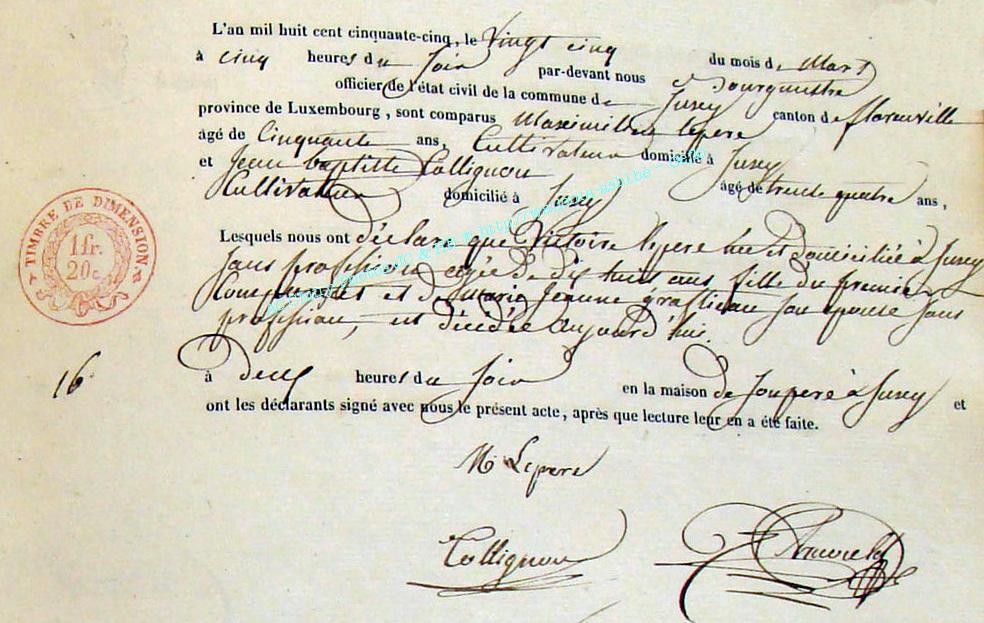 L'an mil huit cent cinquante-cinq, le Vingt cinq du mois de Mars
à cinq heures du Soir par-devant nous Bourgmestre
officier de l'état civil de la commune de Jusey canton de florenville
province de Luxembourg, sont comparus Maximilien lepere
âgé de Cinquante ans, Cultivateur domicilié à Jusey
et Jean baptiste Collignon âgé de trente quatre ans,
Cultivateur domicilié à Jusey
Lesquels nous ont déclaré que Victoire lepere née et domiciliée à Jusey
sans profession agée de dix huit ans fille du premier
Comparant et de Marie Jeanne son epouse sans
profession, est décédée aujourd'hui.
16
à deux heures du Soir en la maison de son pere à Jusey et
ont les déclarants signé avec nous le présent acte, après que lecture leur en a été faite.
M Lepere
Collignon
TIMBRE DE DIMENSION
1 fr.
20 c.